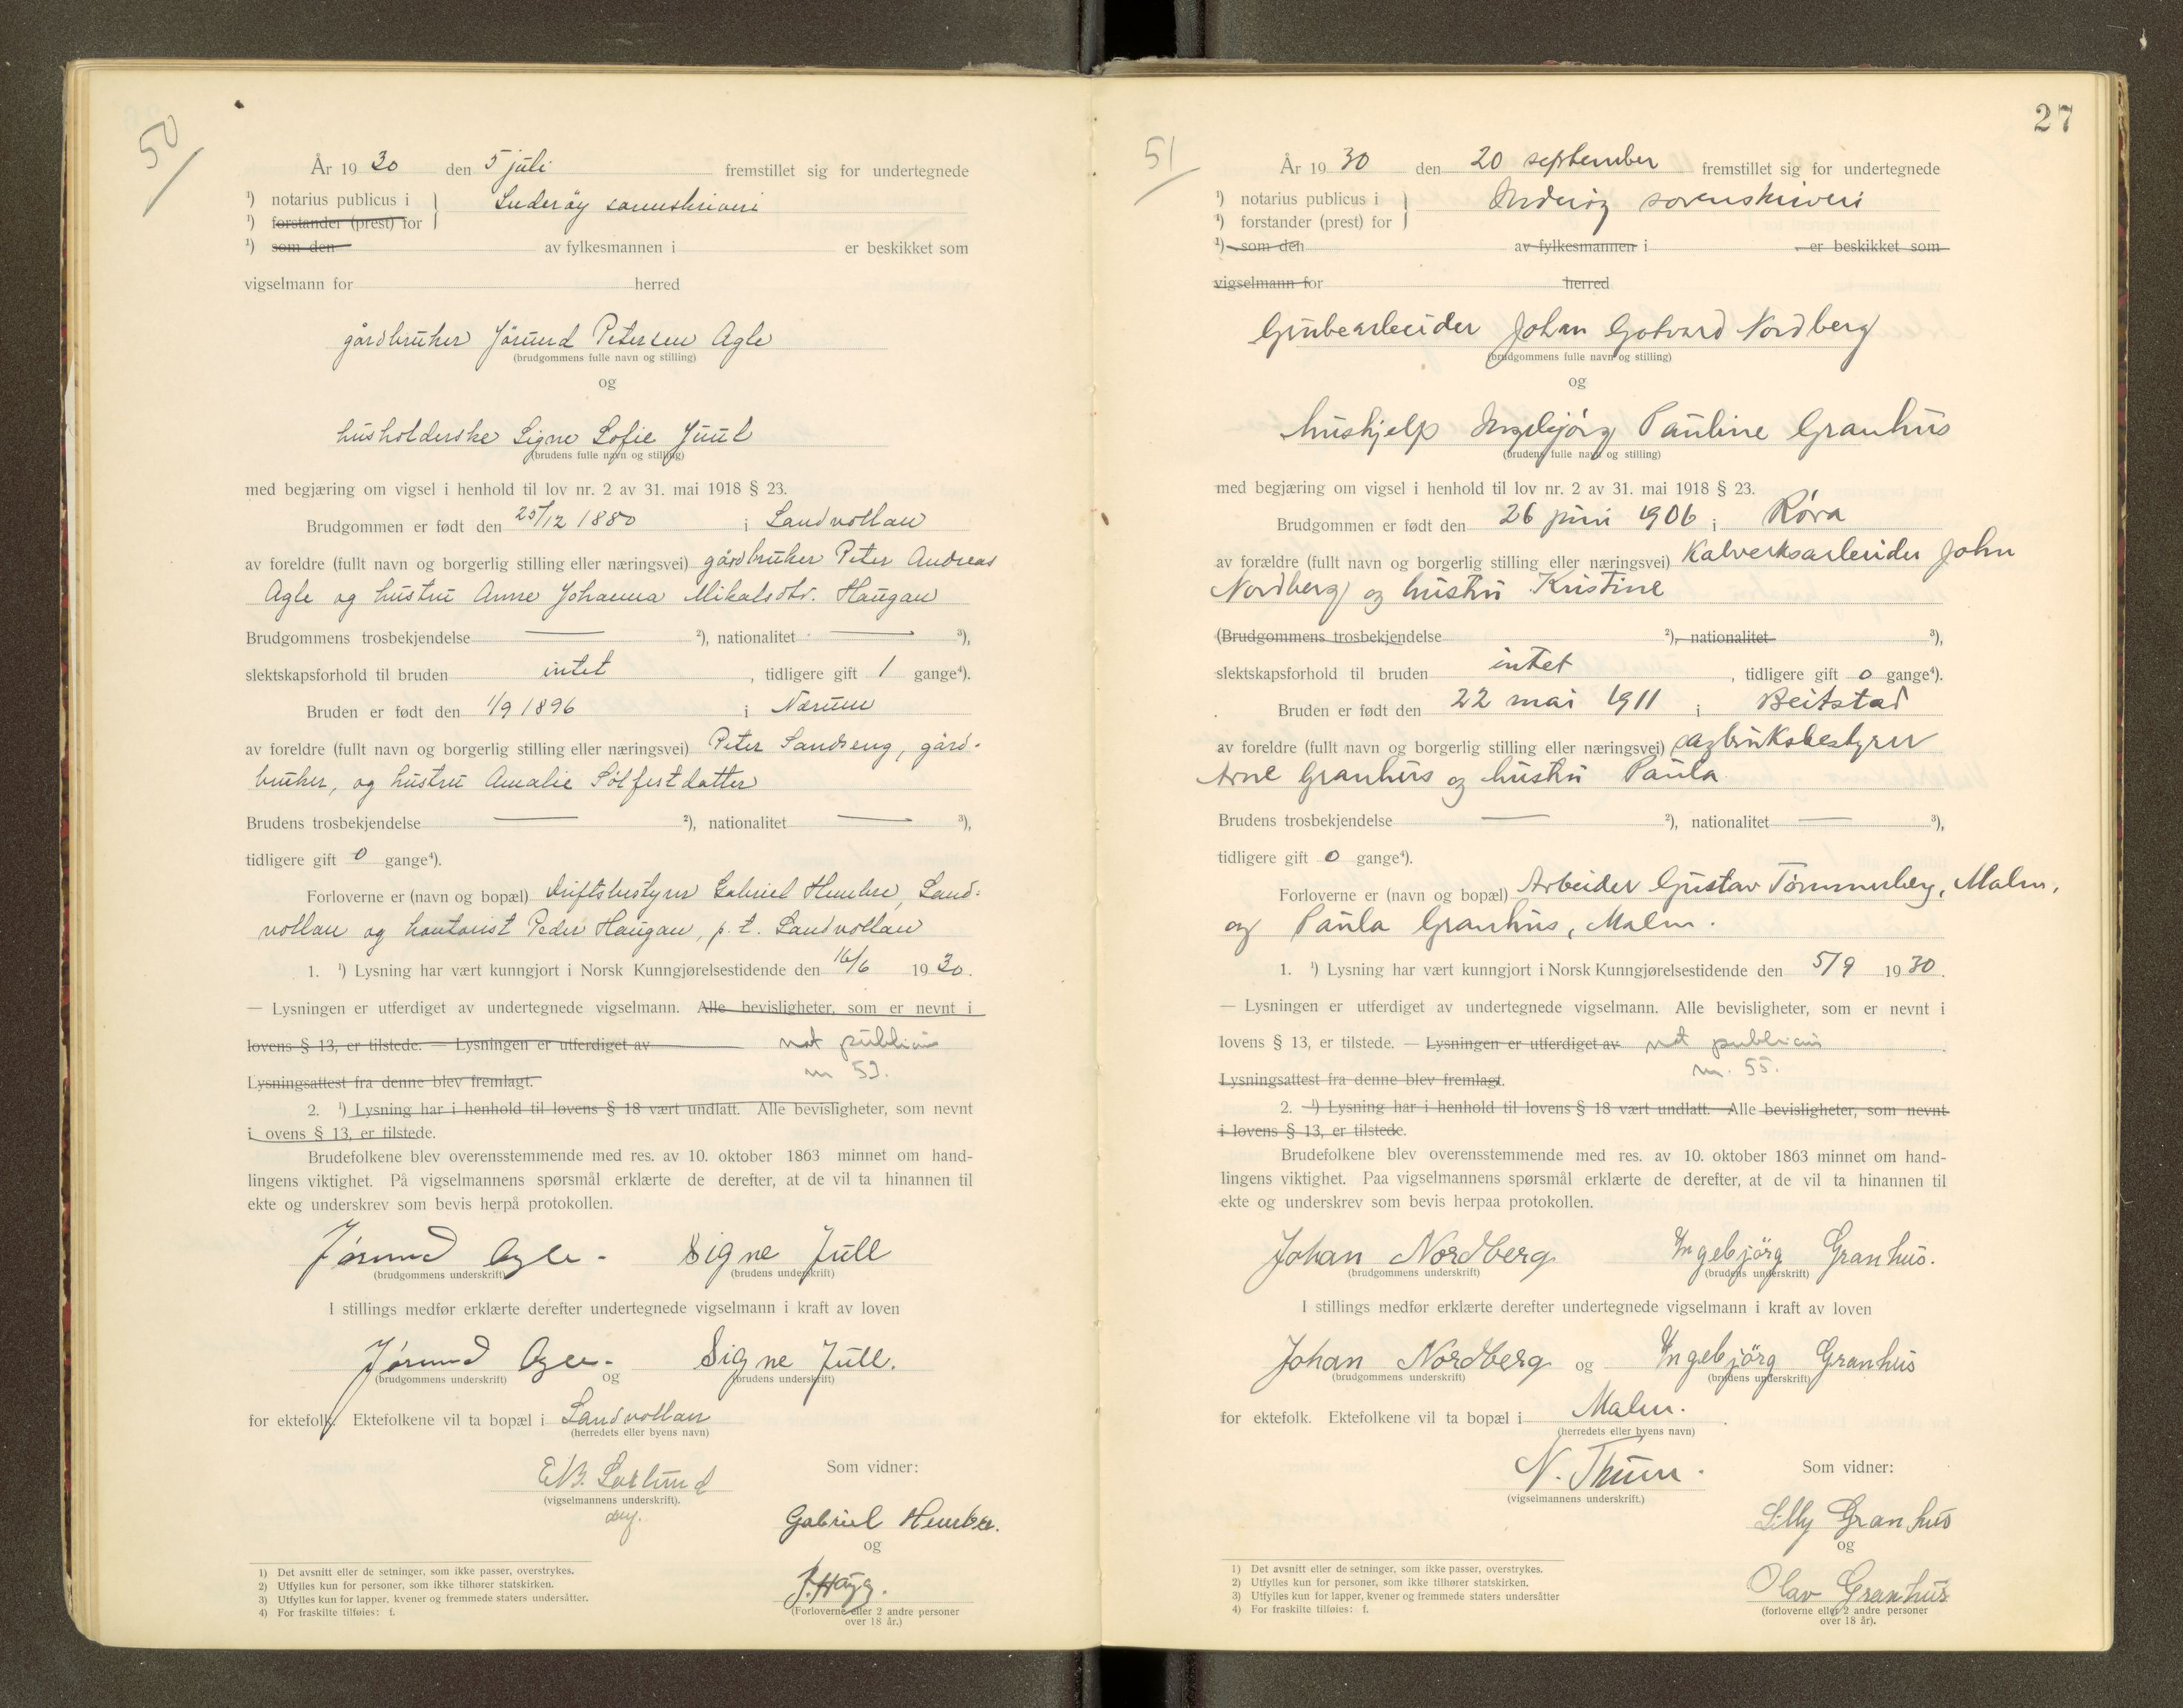 50
År 1930 den 5 juli fremstillet sig for undertegnede
¹) notarius publicus i
Inderøy sorenskriveri
¹) forstander (prest) for
¹) som den av fylkesmannen i er beskikket som
vigselmann for herred
gårdbruker Jørund Petersen Agle
(brudgommens fulle navn og stilling)
og
husholderske Signe Sofie Juul
(brudens fulle navn og stilling)
med begjæring om vigsel i henhold til lov nr. 2 av 31. mai 1918 § 23.
Brudgommen er født den 25/12 1880 i Sandvollan
av foreldre (fullt navn og borgerlig stilling eller næringsvei) gårdbruker Peter Andreas
Agle og hustru Anne Johanna Mikalsdtr. Haugan
Brudgommens trosbekjendelse — ²), nationalitet — ³),
slektskapsforhold til bruden intet, tidligere gift 1 gange⁴).
Bruden er født den 1/9 1896 i Nærum
av foreldre (fullt navn og borgerlig stilling eller næringsvei) Peter Sandseng, gård-
bruker, og hustru Amalie Sølfestdatter
Brudens trosbekjendelse — ²), nationalitet — ³),
tidligere gift 0 gange⁴).
Forloverne er (navn og bopæl) driftsbestyrer Gabriel Hembre, Sand-
vollan og kontorist Peder Haugan, p. t. Sandvollan
1. ¹) Lysning har vært kunngjort i Norsk Kunngjørelsestidende den 16/6 1930.
— Lysningen er utferdiget av undertegnede vigselmann. Alle bevisligheter, som er nevnt i
lovens § 13, er tilstede. — Lysningen er utferdiget av not publicus
nr 53.
Lysningsattest fra denne blev fremlagt.
2. ¹) Lysning har i henhold til lovens § 18 vært undlatt. Alle bevisligheter, som nevnt
i ovens § 13, er tilstede.
Brudefolkene blev overensstemmende med res. av 10. oktober 1863 minnet om hand-
lingens viktighet. På vigselmannens spørsmål erklærte de derefter, at de vil ta hinannen til
ekte og underskrev som bevis herpå protokollen.
Jørund Agle - Signe Jull
(brudgommens underskrift) (brudens underskrift)
I stillings medfør erklærte derefter undertegnede vigselmann i kraft av loven
Jørund Agle - og Signe Jull.
(brudgommens underskrift) (brudens underskrift)
for ektefolk. Ektefolkene vil ta bopæl i Sandvollan
(herredets eller byens navn)
Som vidner:
(vigselmannens underskrift).
Gabriel Hembre.
og
J. Hagg.
(Forloverne eller 2 andre personer
over 18 år.)
1) Det avsnitt eller de setninger, som ikke passer, overstrykes.
2) Utfylles kun for personer, som ikke tilhører statskirken.
3) Utfylles kun for lapper, kvener og fremmede staters undersåtter.
4) For fraskilte tilføies: f.
27
51
År 1930 den 20 september fremstillet sig for undertegnede
¹) notarius publicus i
Inderøy sorenskriveri
¹) forstander (prest) for
¹) som den av fylkesmannen i er beskikket som
vigselmann for herred
Grubearbeider Johan Gotvard Nordberg
(brudgommens fulle navn og stilling)
og
hushjelp Ingebjørg Pauline Granhus
(brudens fulle navn og stilling)
med begjæring om vigsel i henhold til lov nr. 2 av 31. mai 1918 § 23.
Brudgommen er født den 26 juni 1906 i Røra
av forældre (fullt navn og borgerlig stilling eller næringsvei) Kalverksarbeider John
Nordberg og hustru Kristine
(Brudgommens trosbekjendelse ²), nationalitet ³),
slektskapsforhold til bruden intet, tidligere gift 0 gange⁴).
Bruden er født den 22 mai 1911 i Beitstad
av foreldre (fullt navn og borgerlig stilling eller næringsvei) Gagbruksbestyrer
Arne Granhus og hustru Paula
Brudens trosbekjendelse — ²), nationalitet — ³),
tidligere gift 0 gange⁴).
Forloverne er (navn og bopæl) Arbeider Gustav Tømmerberg, Malm,
og Paula Granhus, Malm.
1. ¹) Lysning har vært kunngjort i Norsk Kunngjørelsestidende den 5/9 1930.
— Lysningen er utferdiget av undertegnede vigselmann. Alle bevisligheter, som er nevnt i
lovens § 13, er tilstede. — Lysningen er utferdiget av not publicus
nr. 55.
Lysningsattest fra denne blev fremlagt.
2. ¹) Lysning har i henhold til lovens § 18 vært undlatt. Alle bevisligheter, som nevnt
i lovens § 13, er tilstede.
Brudefolkene blev overensstemmende med res. av 10. oktober 1863 minnet om hand-
lingens viktighet. Paa vigselmannens spørsmål erklærte de derefter, at de vil ta hinannen til
ekte og underskrev som bevis herpaa protokollen.
Johan Nordberg Ingebjörg Granhus.
(brudgommens underskrift) (brudens underskrift)
I stillings medfør erklærte derefter undertegnede vigselmann i kraft av loven
Johan Nordberg og Ingebjörg Granhus
(brudgommens underskrift) (brudens underskrift)
for ektefolk. Ektefolkene vil ta bopæl i Malm.
(herredets eller byens navn)
N. Thum.
Som vidner:
(vigselmannens underskrift.)
Lilly Granhus
og
Olav Granhus
(forloverne eller 2 andre personer
over 18 år).
1) Det avsnitt eller de setninger, som ikke passer, overstrykes.
2) Utfylles kun for personer, som ikke tilhører statskirken.
3) Utfylles kun for lapper, kvener og fremmede staters undersåtter
4) For fraskilte tilføies: f.